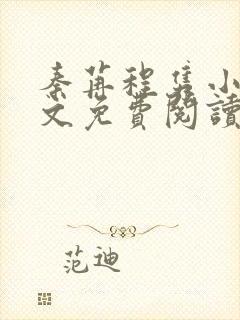 秦苒程隽小
文免費閱讀
范迪